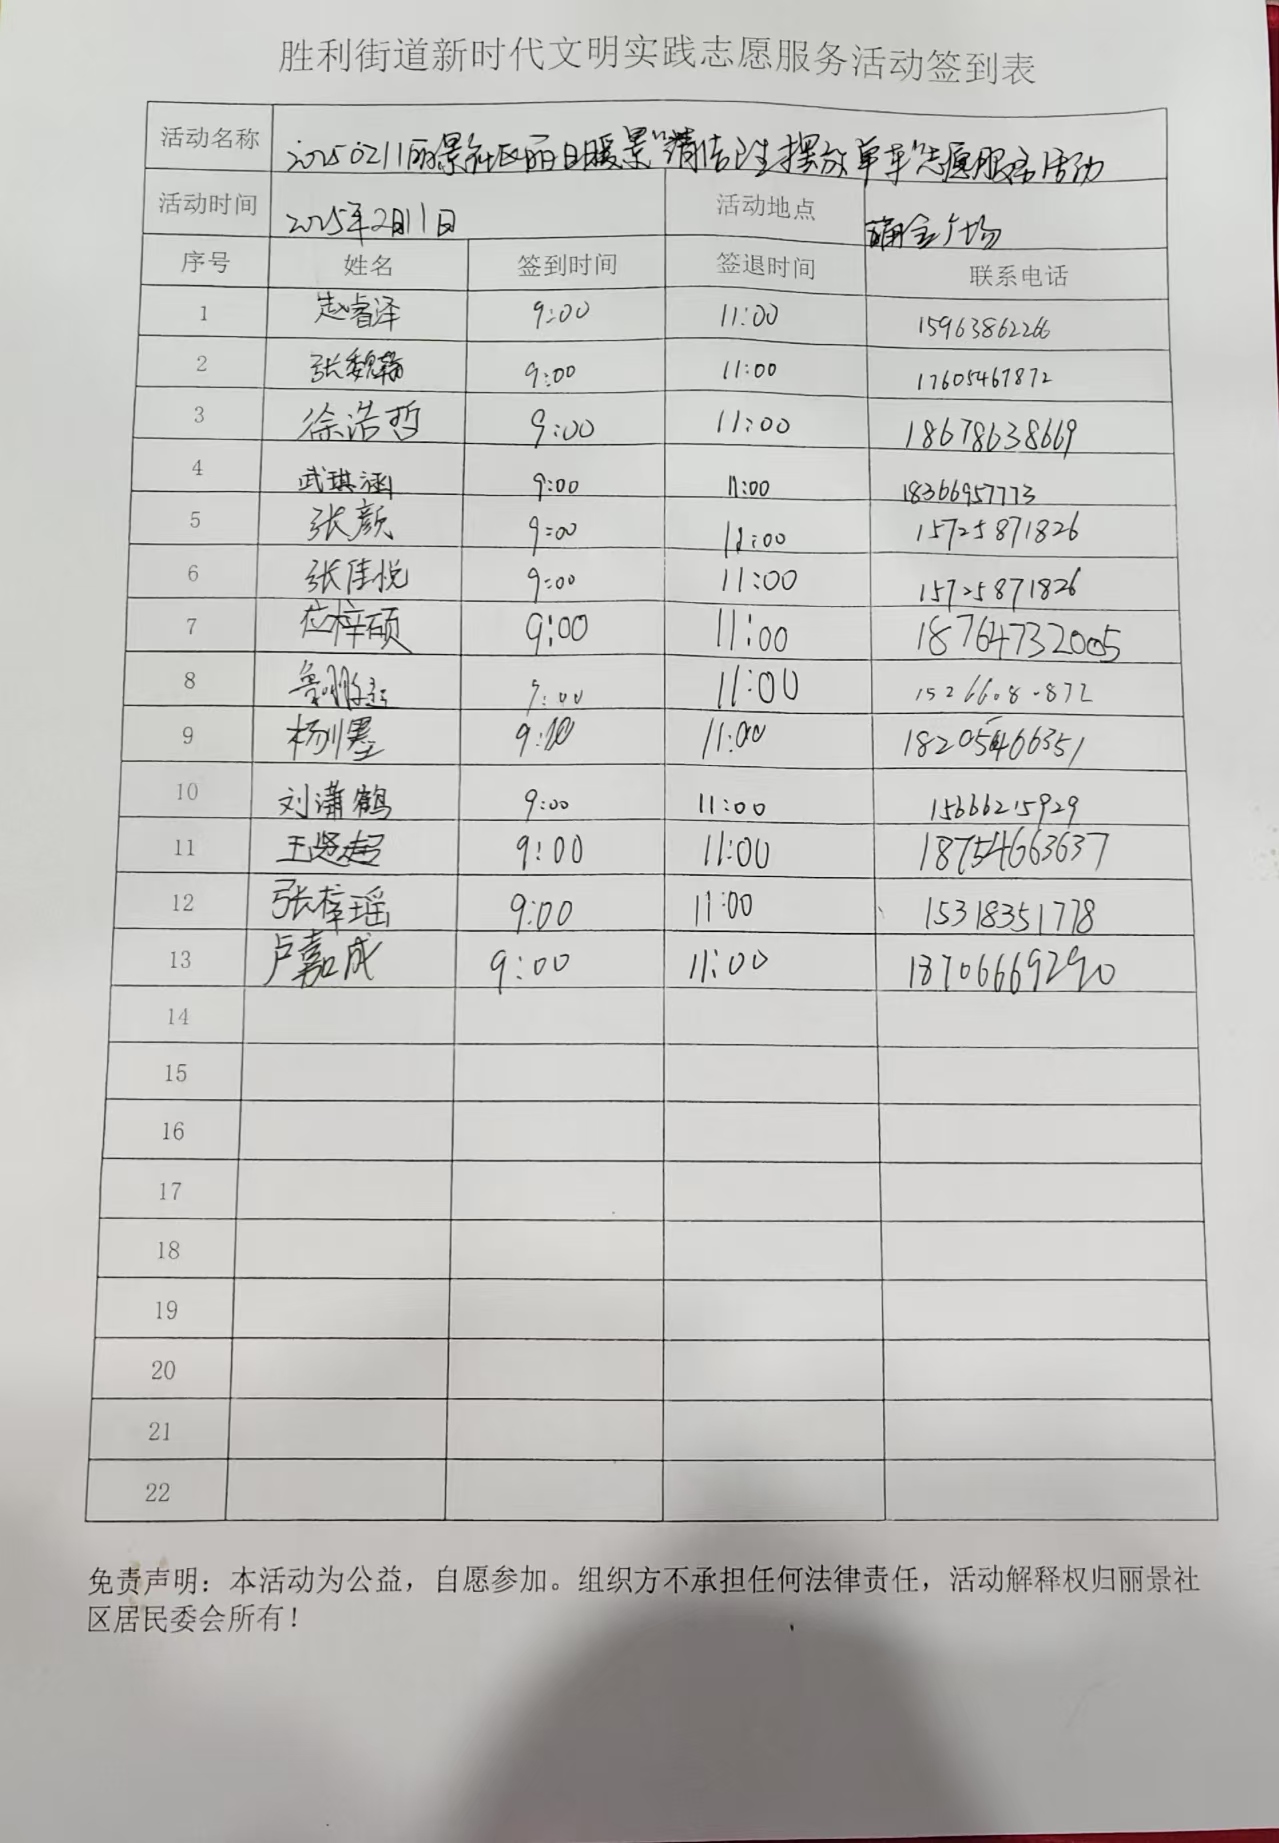 胜利街道新时代文明实践志愿服务活动签到表
活动名称 20250211丽景社区丽日暖景“清洁卫生摆放单车”志愿服务活动
活动时间 2025年2月11日 活动地点 广场
序号 姓名 签到时间 签退时间 联系电话
1 赵睿泽 9:00 11:00 15963862266
2 张魏翰 9:00 11:00 17605467872
3 徐浩哲 9:00 11:00 18678638669
4 武琪涵 9:00 11:00 18366957773
5 张颜 9:00 11:00 15725871826
6 张佳悦 9:00 11:00 15725871826
7 梓硕 9:00 11:00 18764732005
8 11:00
9 杨 11:00 18205466351
10 刘潇鹤 9:00 11:00 15666215929
11 王贤超 9:00 11:00 18754663637
12 张梓瑶 9:00 11:00 15318351778
13 卢嘉成 9:00 11:00 18706669290
14
15
16
17
18
19
20
21
22
免责声明：本活动为公益，自愿参加。组织方不承担任何法律责任，活动解释权归丽景社
区居民委会所有！